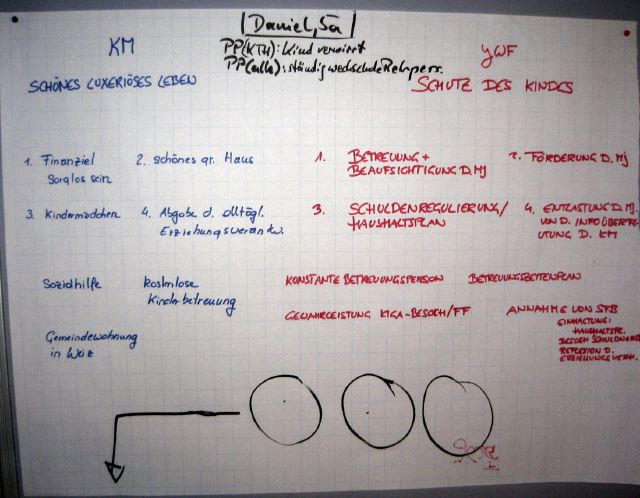 Daniel, 5a
KM
PP(KTH): Kind verwirrt
JWF
PP(alle): ständig wechselnde Ref.pers.
SCHÖNES LUXERIÖSES LEBEN
SCHUTZ DES KINDES
1. Finanziel sorglos sein
2. schönes gr. Haus
1. BETREUUNG + BEAUFSICHTIGUNG D. MJ
2. FÖRDERUNG D. MJ
3. Kindermädchen
4. Abgabe d. alltägl. Erziehungsverantw.
3. SCHULDENREGULIERUNG/ HAUSHALTSPLAN
4. ENTLASTUNG D. MJ. VON D. INFOÜBERTRAGUNG D. KM
Sozialhilfe
kostenlose Kinderbetreuung
KONSTANTE BETREUUNGSPERSON
BETREUUNGSZEITENPLAN
GEWÄHRLEISTUNG KIGA-BESUCH/FF
ANNAHME VON SFB
EINHALTUNG:
HAUSHALTSPL.
BESUCH SCHULDNERB.
REFLEXION D.
ERZIEHUNGSVERH.
Gemeindewohnung
in Weiz